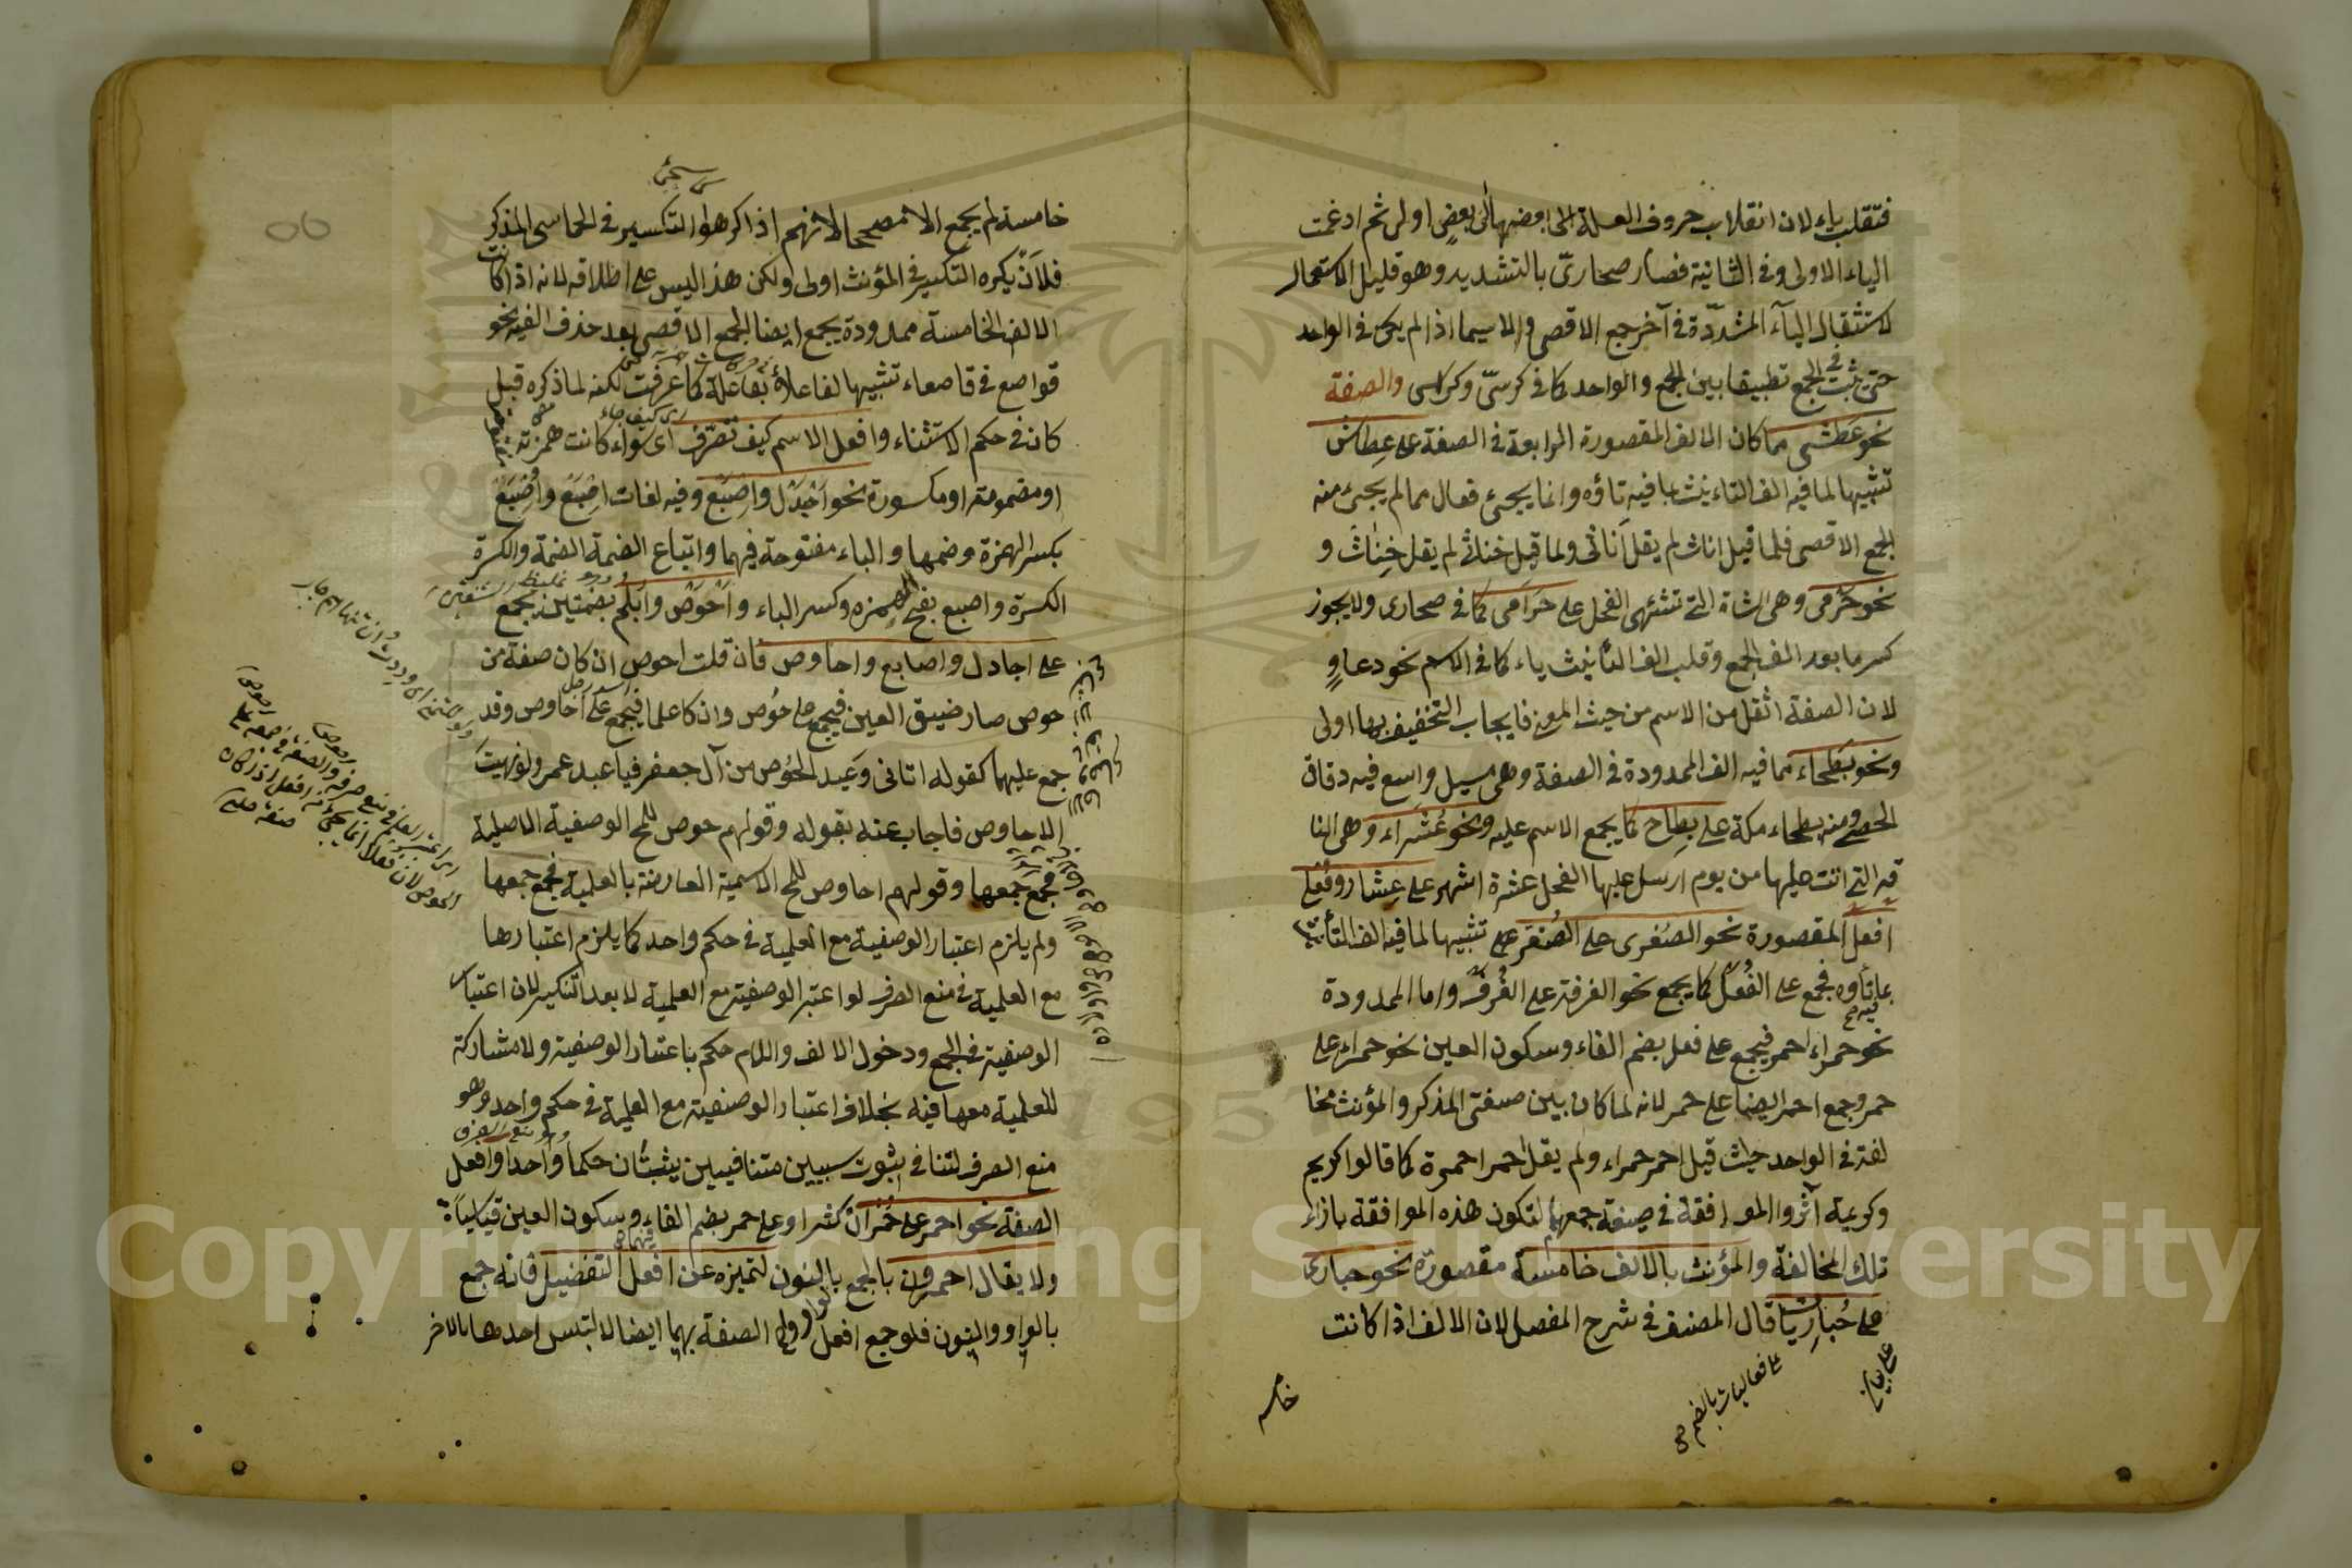 فتقلب ياء لان انقلاب حروف العلة الى بعضها الى بعض اولى ثم ادغمت
الياء الاولى في الثانية فصار صحاريّ بالتشديد وهو قليل الاستعمال
لاستثقال الياء المشدّدة في آخر جمع الاقصى ولا سيما اذا لم يكن في الواحد
حتى يثبت في الجمع تطبيقا بين الجمع والواحد كما في كرسيّ وكراسى والصفة
نحو عطشى مما كان الالف المقصورة الرابعة في الصفة على عِطاش
تشبيها لما فيه الف التاءنيث بما فيه تاؤه وانما يجئ فعال مما لم يجئ منه
الجمع الاقصى فلما قيل اناث لم يقل أناثى ولما قيل خناثى لم يقل خِناث و
نحو حَرْمى وهي الشاة التي تشتهى الفحل على حَرَامى كما في صحارى ولا يجوز
كسر ما بعد الف الجمع وقلب الف التأنيث ياء كما في الاسم نحو دعاوٍ
لان الصفة اثقل من الاسم من حيث المعنى فايجاب التخفيف بها اولى
ونحو بطحاء مما فيه الف الممدودة في الصفة وهى مسيل واسع فيه دقاق
الحصى ومنه بطحاء مكة على بطاح كما يجمع الاسم عليه ونحو عُشَراء وهى النا
قة التي اتت عليها من يوم ارسل عليها الفحل عشرة اشهر على عِشار وفُعْلى
افعل المقصورة نحو الصُغرى على الصُغَر على تشبيها لما فيه الف التأنيث
بما تأوه فيجمع على الفُعَل كما يجمع نحو الغرفة على الغُرَف واما الممدودة
نحو حمراء احمر فيجمع على فعل بضم الفاء وسكون العين نحو حمراء على
حمر وجمع احمر ايضا على حمر لانه لما كان بين صيغتى المذكر والمؤنث مخا
لفة في الواحد حيث قيل احمر حمراء ولم يقل احمر احمرة كما قالوا كريم
وكريمة آثروا الموافقة في صيغة جمعهما لتكون هذه الموافقة بازاء
تلك المخالفة والمؤنث بالالف خامسة مقصورة نحو حبارى
على حُبارَيات قال المصنف في شرح المفصل لان الالف اذا كانت
على فعاليات بالضم
خامسة
خامسة لم يجمع الا مصححا لانهم اذا كرهوا التكسير في الخماسى المذكر
فلاَنْ يكره التكسير في المؤنث اولى ولكن هذا ليس على اطلاقه لانه اذا كانت
الالف الخامسة ممدودة يجمع ايضا الجمع الاقصى بعد حذف الفيه نحو
قواصع في قاصعاء تشبيها لفاعلاء بفاعلة كما عرفت لكنه لما ذكره قبل
كان في حكم الاستثناء وافعل الاسم كيف تصرّف اى سواء كانت همزته
او مضمومة او مكسورة نحو اَجْدَل واِصبَع وفيه لغات اِصْبَع واُصْبَع
بكسر الهمزة وضمها والباء مفتوحة فيهما واتباع الضمة الضمة والكسرة
الكسرة واصبع بفتح الهمزة وكسر الباء واَحْوَص واُبْلُم بضمتين يجمع
على اجادل واصابع واحاوص فان قلت احوص ان كان صفة من
حوص صار ضيق العين فيجمع على حُوص وان كا علما فيجمع على احاوص وقد
جمع عليهما كقوله اتانى وعيد الحُوص من آل جعفر فيا عبد عمرو لو نهيت
الاحاوص فاجاب عنه بقوله وقولهم حوص للمح الوصفية الاصلية
فجمع جمعها وقولهم احاوص للمح الاسمية العارضة بالعلمية فجمع جمعها
ولم يلزم اعتبار الوصفية مع العلمية في حكم واحد كما يلزم اعتبارها
مع العلمية في منع الصرف لو اعتبر الوصفية مع العلمية لا بعد التنكير لان اعتبار
الوصفية في الجمع ودخول الالف واللام حكم باعتبار الوصفية ولا مشاركة
للعلمية معها فيه بخلاف اعتبار الوصفية مع العلمية في حكم واحد وهو
منع الصرف لتنافى ثبوت سببين متنافيين يثبتان حكما واحدا وافعل
الصفة نحو احمر على حُمْران كثيرا وعلى حمر بضم الفاء وسكون العين قياسا
ولا يقال احمرون بالجمع بالنون لتميزه عن افعل التفضيل فانه جمع
بالواو والنون فلو جمع افعل الصفة بهما ايضا لالتبس احدهما بالآخر
Copyright © King Saud University
1957